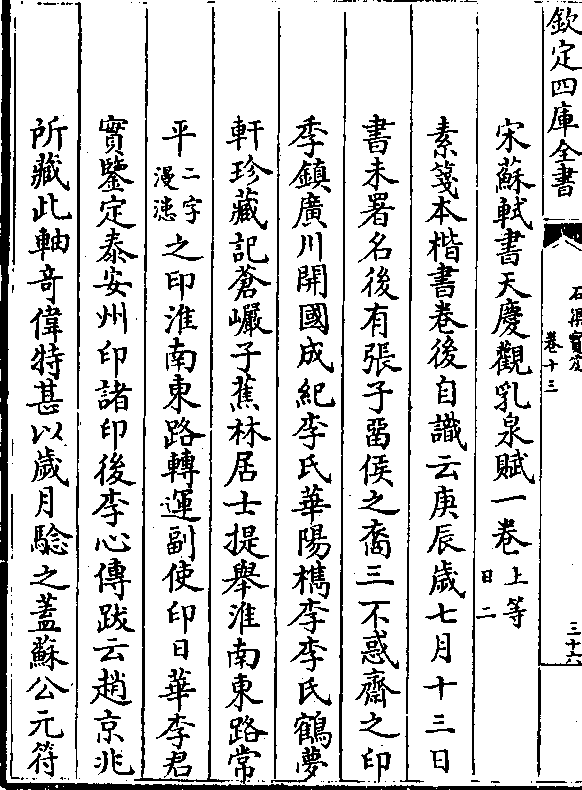 欽定四庫全書
石渠寶笈
卷十三
三十六
宋蘇軾書天慶觀乳泉賦一卷上等
日二
素箋本楷書卷後自識云庚辰歲七月十三日
書未署名後有張子㽞侯之裔三不惑齋之印
季鎮廣川開國成紀李氏華陽檇李李氏鶴夢
軒珍藏記蒼巘子蕉林居士提舉淮南東路常
平二字漫漶之印淮南東路轉運副使印日華李君
實鑒定泰安州印諸印後李心傳跋云趙京兆
所藏此軸竒偉特甚以歲月騐之蓋蘇公元符